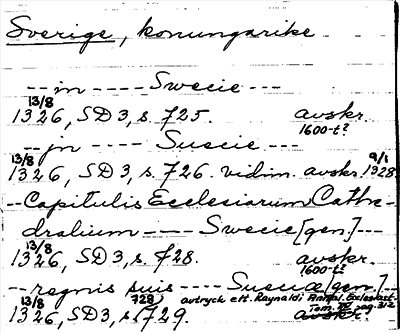 Sverige, konungarike
--in ---- Swecie ---
13/8
1326, SD 3, s. 725. avskr.
1600-t?
--in ---- Suecie ---
13/8 9/1
1326, SD 3, s. 726. vidim. avskr. 1328.
--Capitulis Ecclesiarum Cathe-
dralium ---- Swecie [gen] ---
13/8
1326, SD 3, s. 728. avskr.
1600-t?
--regnis suis ---- Sueciæ [gen] --
13/8 728, avtryck eft. Raynaldi Annal. Eclesiast.
Tom. pag. 312
1326, SD3, s. 729. avskr.